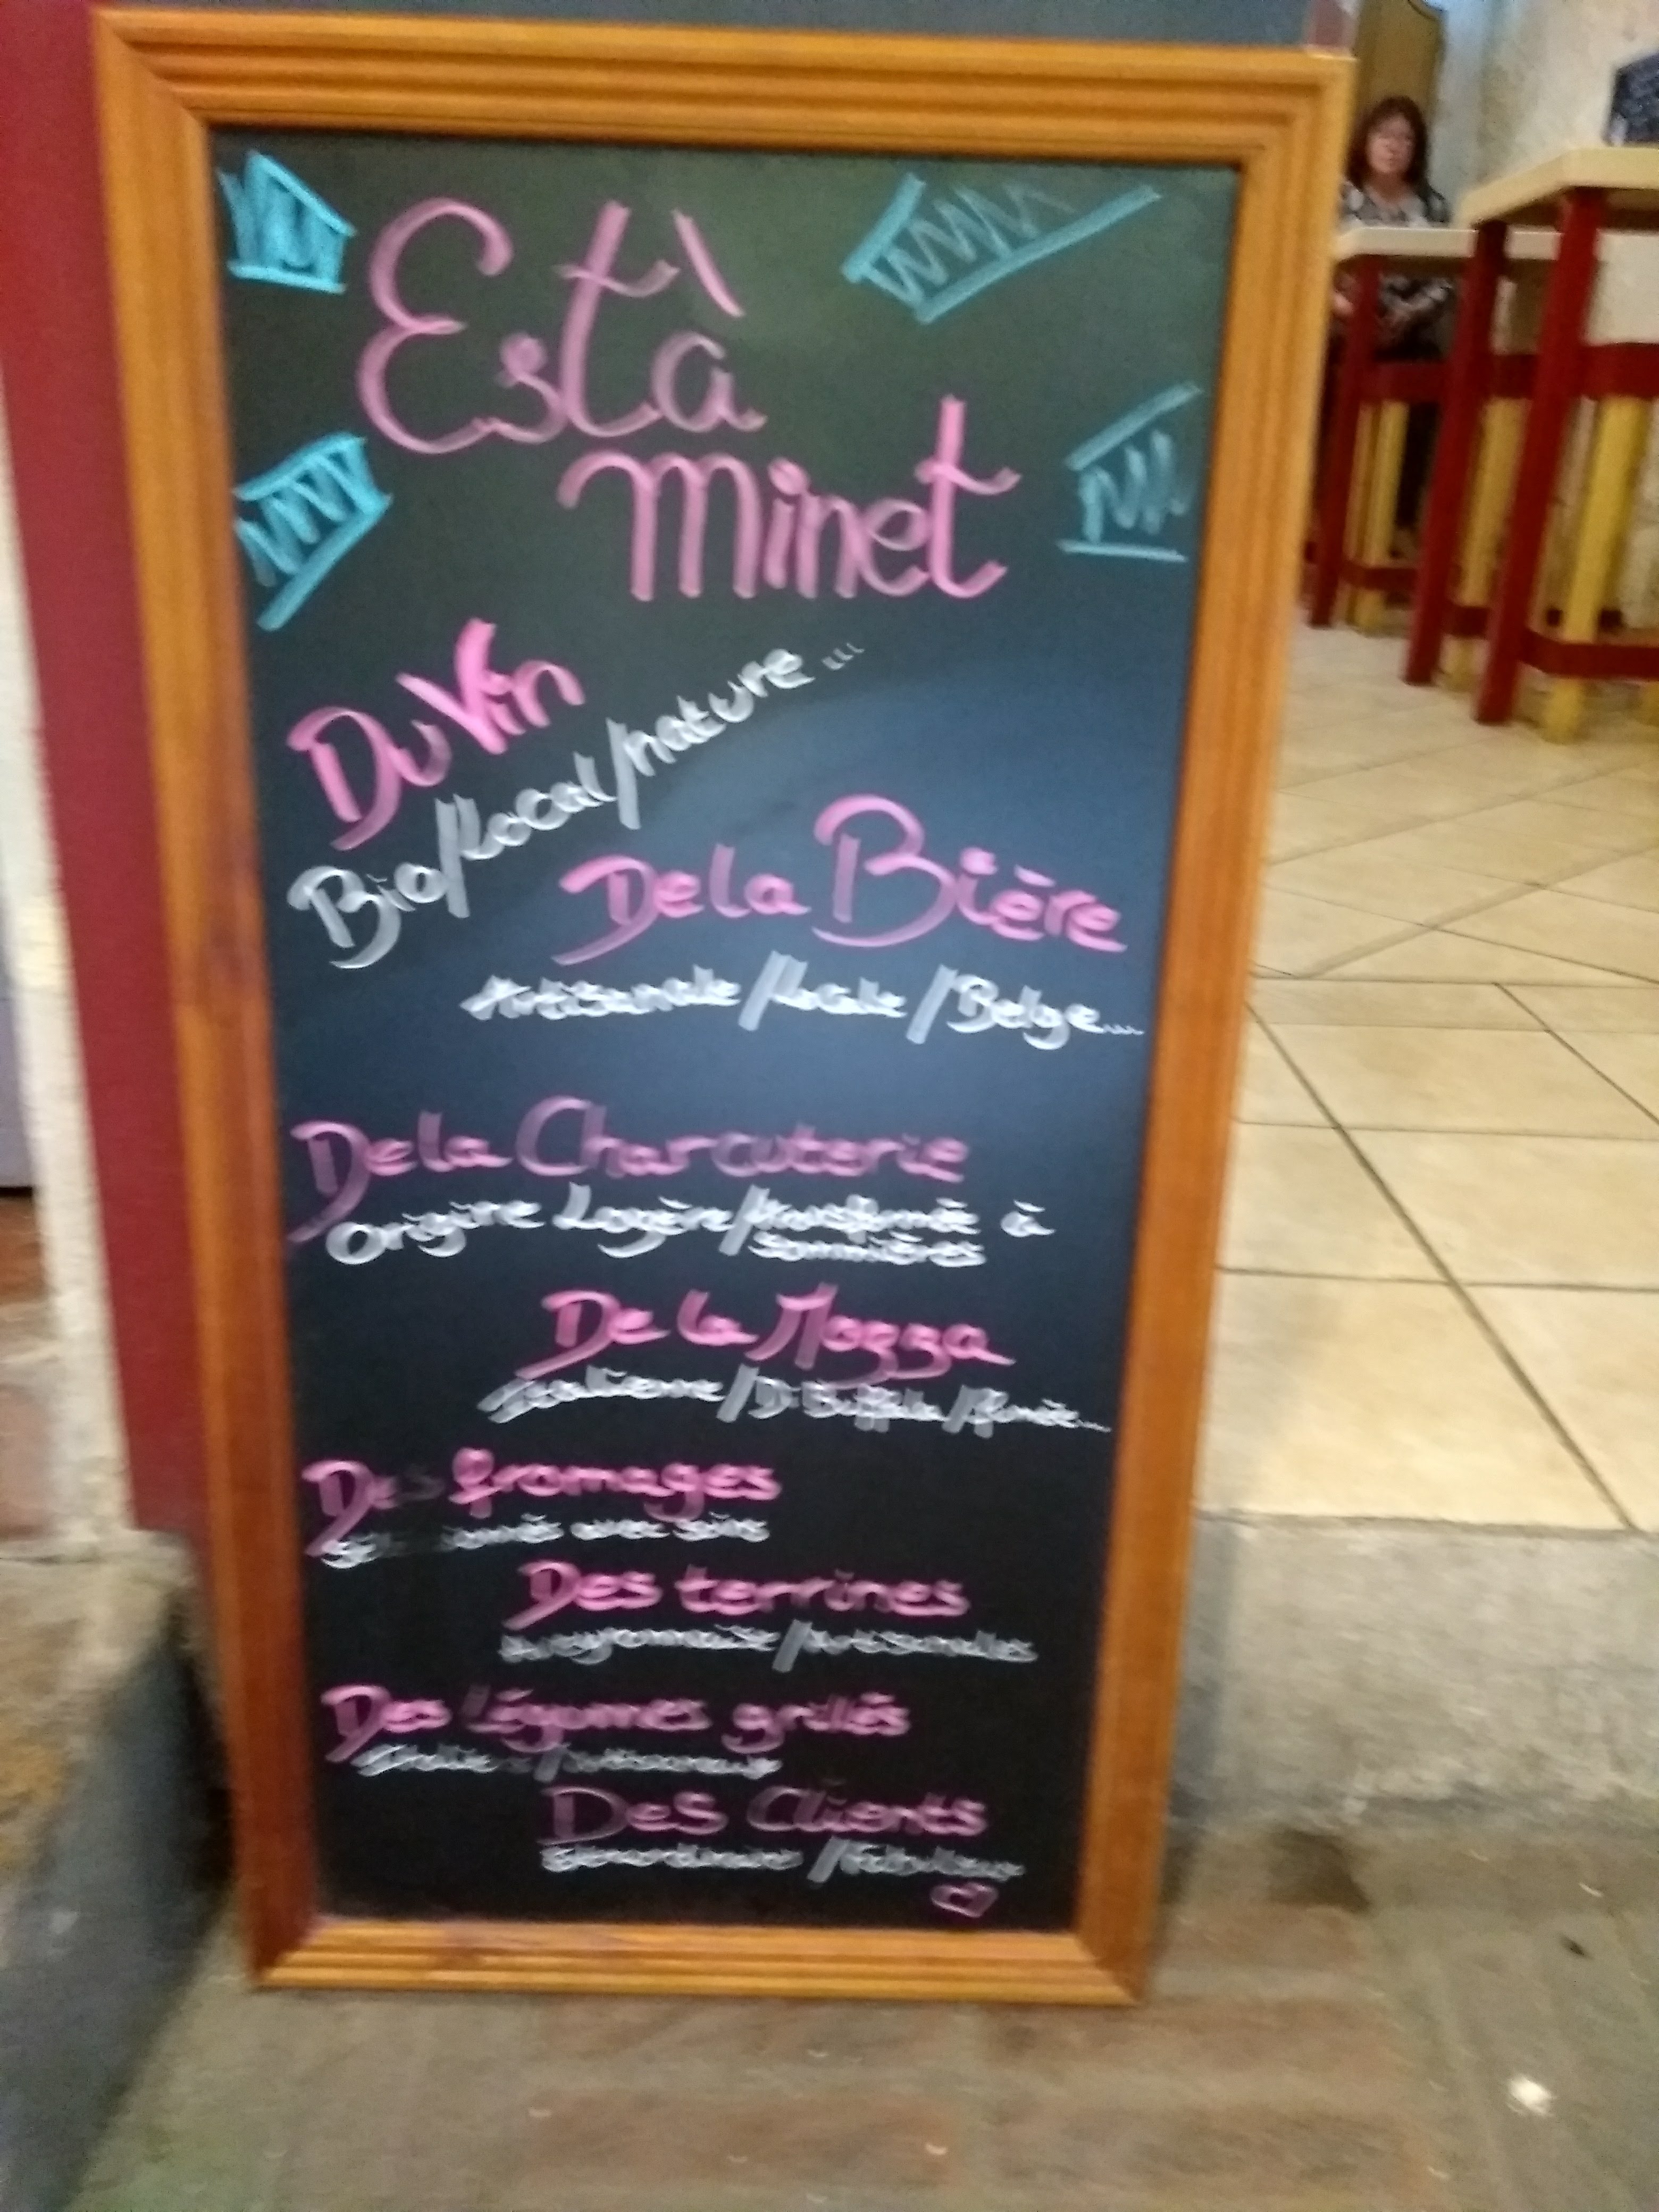 Està
minet
Du Vin
Bio/Local/nature...
De la Bière
Artisanale/Locale/Belge...
De la Charcuterie
Origine Lozère/transformée à
Sommières
De la Mozza
Italienne/Di Buffala/fumée...
Des fromages
avec soins
Des terrines
Aveyronnaise/Artisanales
Des légumes grillés
Des Clients